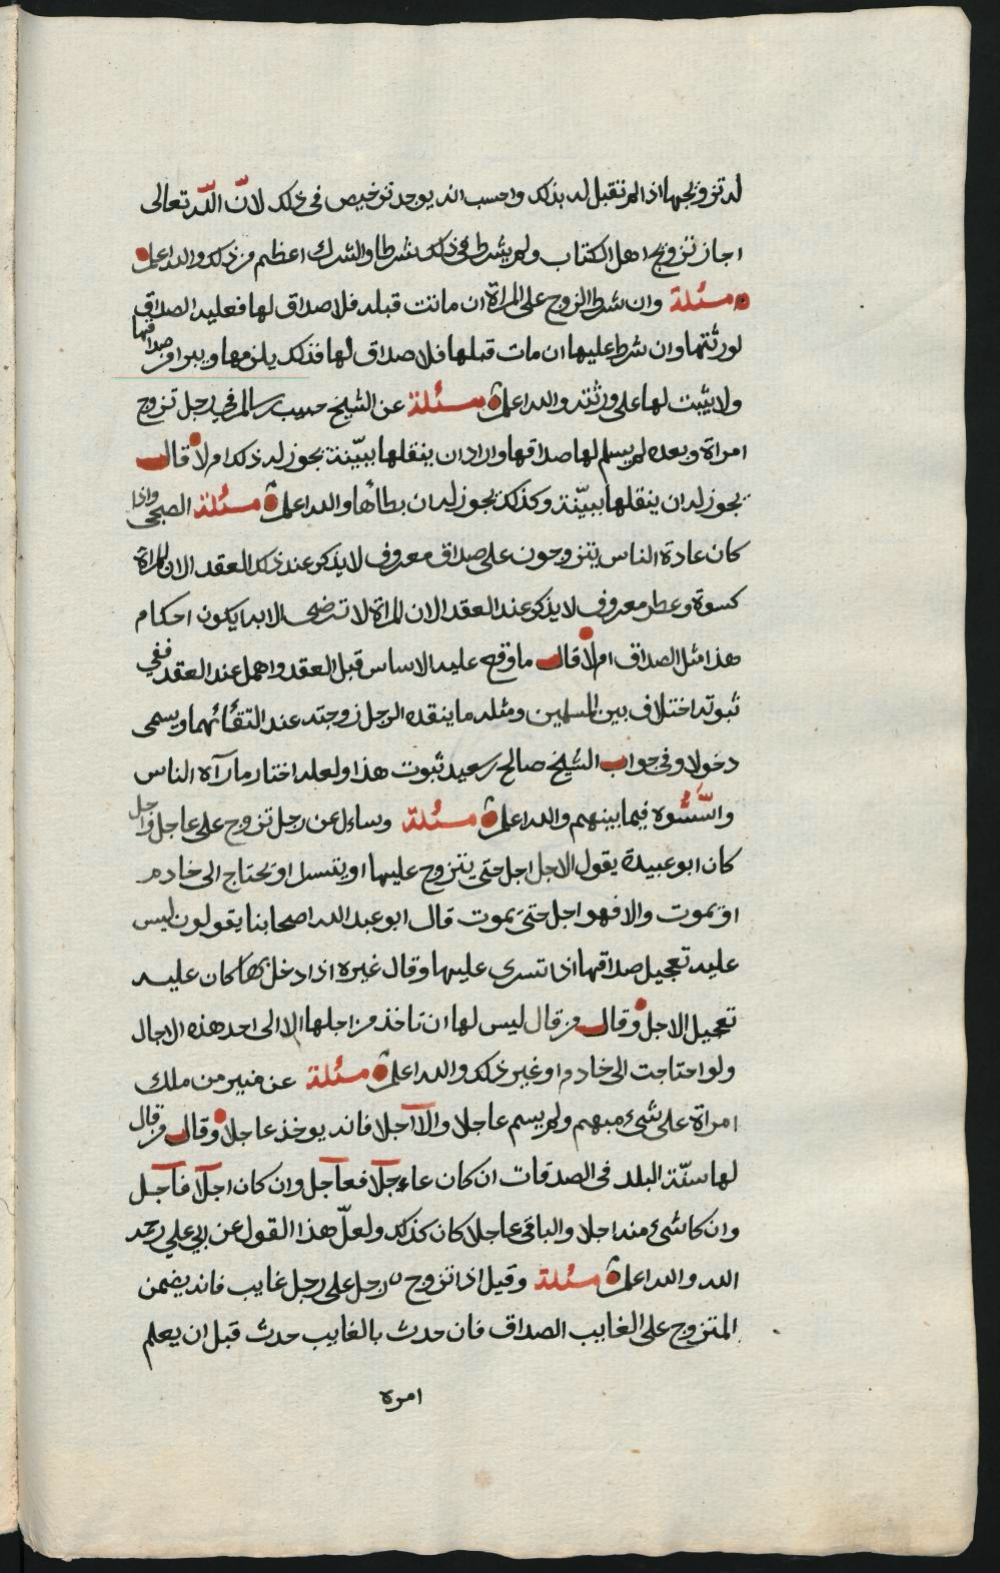 له تزويجها اذا لم تقبل له بذلك واحسب انه يوجد ترخيص في ذلك لانّ اللّه تعالى
اجاز تزويج اهل الكتاب ولم يشرط في ذلك شرطا والشرك اعظم من ذلك والله اعلم
مسئلة وان شرط الزوج على المراة ان ماتت قبله فلا صداق لها فعليه الصداق
لورثتها وان شرط عليها ان مات قبلها فلا صداق لها فذلك يلزمها ويبرا من صداقها
ولا يثبت لها على ورثته والله اعلم مسئلة عن الشيخ حبيب بن سالم في رجل تزوج
امراة وبعده لم يسلم لها صداقها واراد ان ينقلها ببيّنة يجوز له ذلك ام لا قال
يجوز له ان ينقلها ببيّنة وكذلك يجوز له ان يطأها والله اعلم مسئلة الصبحي واذا
كان عادة الناس يتزوجون على صداق معروف لا يذكر عند ذلك العقد الا ان للمراة
كسوة وعطر معروف لا يذكر عند العقد الا ان المراة لا ترضى الا به ايكون احكام
هذا مثل الصداق ام لا قال ما وقع عليه الاساس قبل العقد واهمل عند العقد ففي
ثبوته اختلاف بين المسلمين ومثله ما ينقده الرجل زوجته عند التقائهما ويسمى
دخولا وفي جواب الشيخ صالح بن سعيد ثبوت هذا ولعله اختار ما رآه الناس
واسّسّوه فيما بينهم والله اعلم مسئلة وساءل عن رجل تزوج على عاجل واجل
كان ابو عبيدة يقول الاجل اجل حتى يتزوج عليها او يتسرا او تحتاج الى خادم
او يموت والا فهو اجل حتى يموت قال ابو عبد الله اصحابنا يقولون ليس
عليه تعجيل صداقها اذا تسرى عليها وقال غيره اذا دخل بها كان عليه
تعجيل الاجل وقال من قال ليس لها ان تاخذ من اجلها الا الى احد هذه الاجال
ولو احتاجت الى خادم او غير ذلك والله اعلم مسئلة عن منير من ملك
امراة على شيء مبهم ولم يسم عاجلا والا آجلا فانه يوخذ عاجلا وقال من قال
لها سنّة البلد في الصدقات ان كان عاجلا فعاجل وان كان اجلا فآجل
وان كا شيء منه اجلا والباقي عاجلا كان كذلك ولعلّ هذا القول عن ابي علي رحمه
الله والله اعلم مسئلة وقيل اذا تزوج رجل على رجل غايب فانه يضمن
المتزوج على الغايب الصداق فان حدث بالغايب حدث قبل ان يعلم
امره